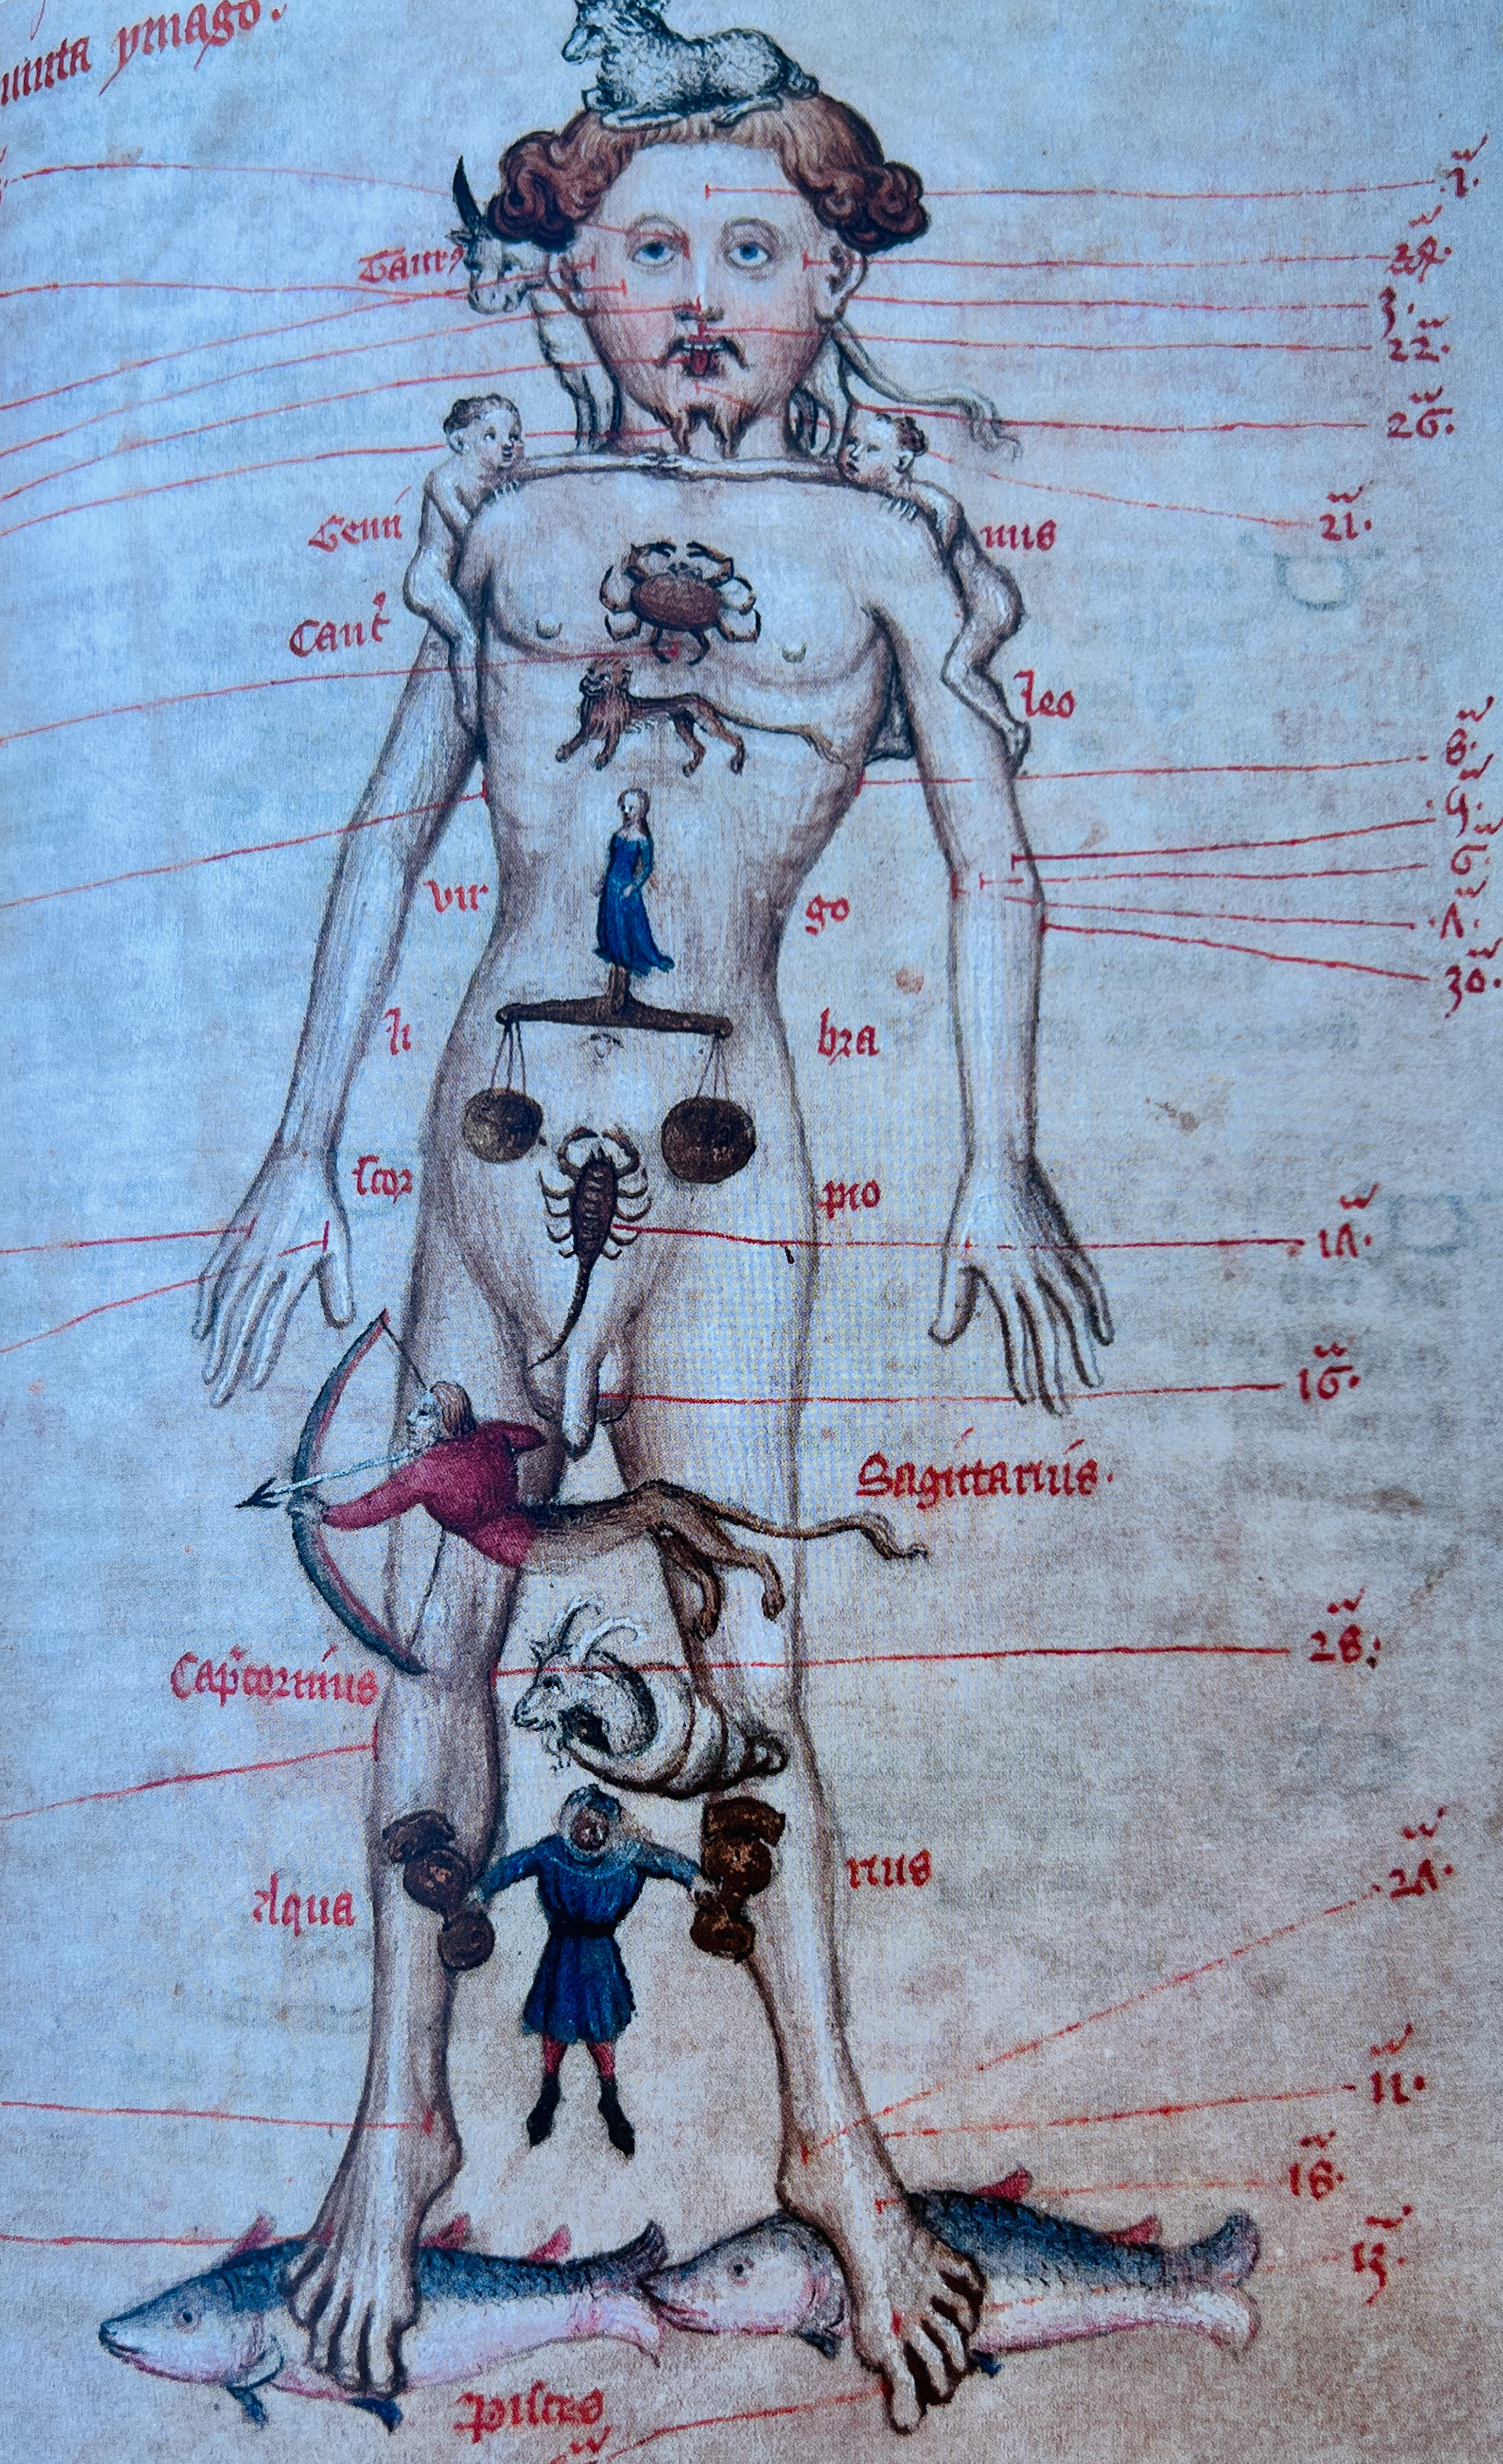 uinta ymago.
1.
Taur9
27.
3.
22.
26.
21.
Gemi
nus
Canc
leo
8.
4.
6.
vir
go
.7.
30.
li
bra
scor
pio
17.
16.
Sagittarius.
28:
Capicornius
27.
Aqua
rius
11.
18.
13.
Pisces